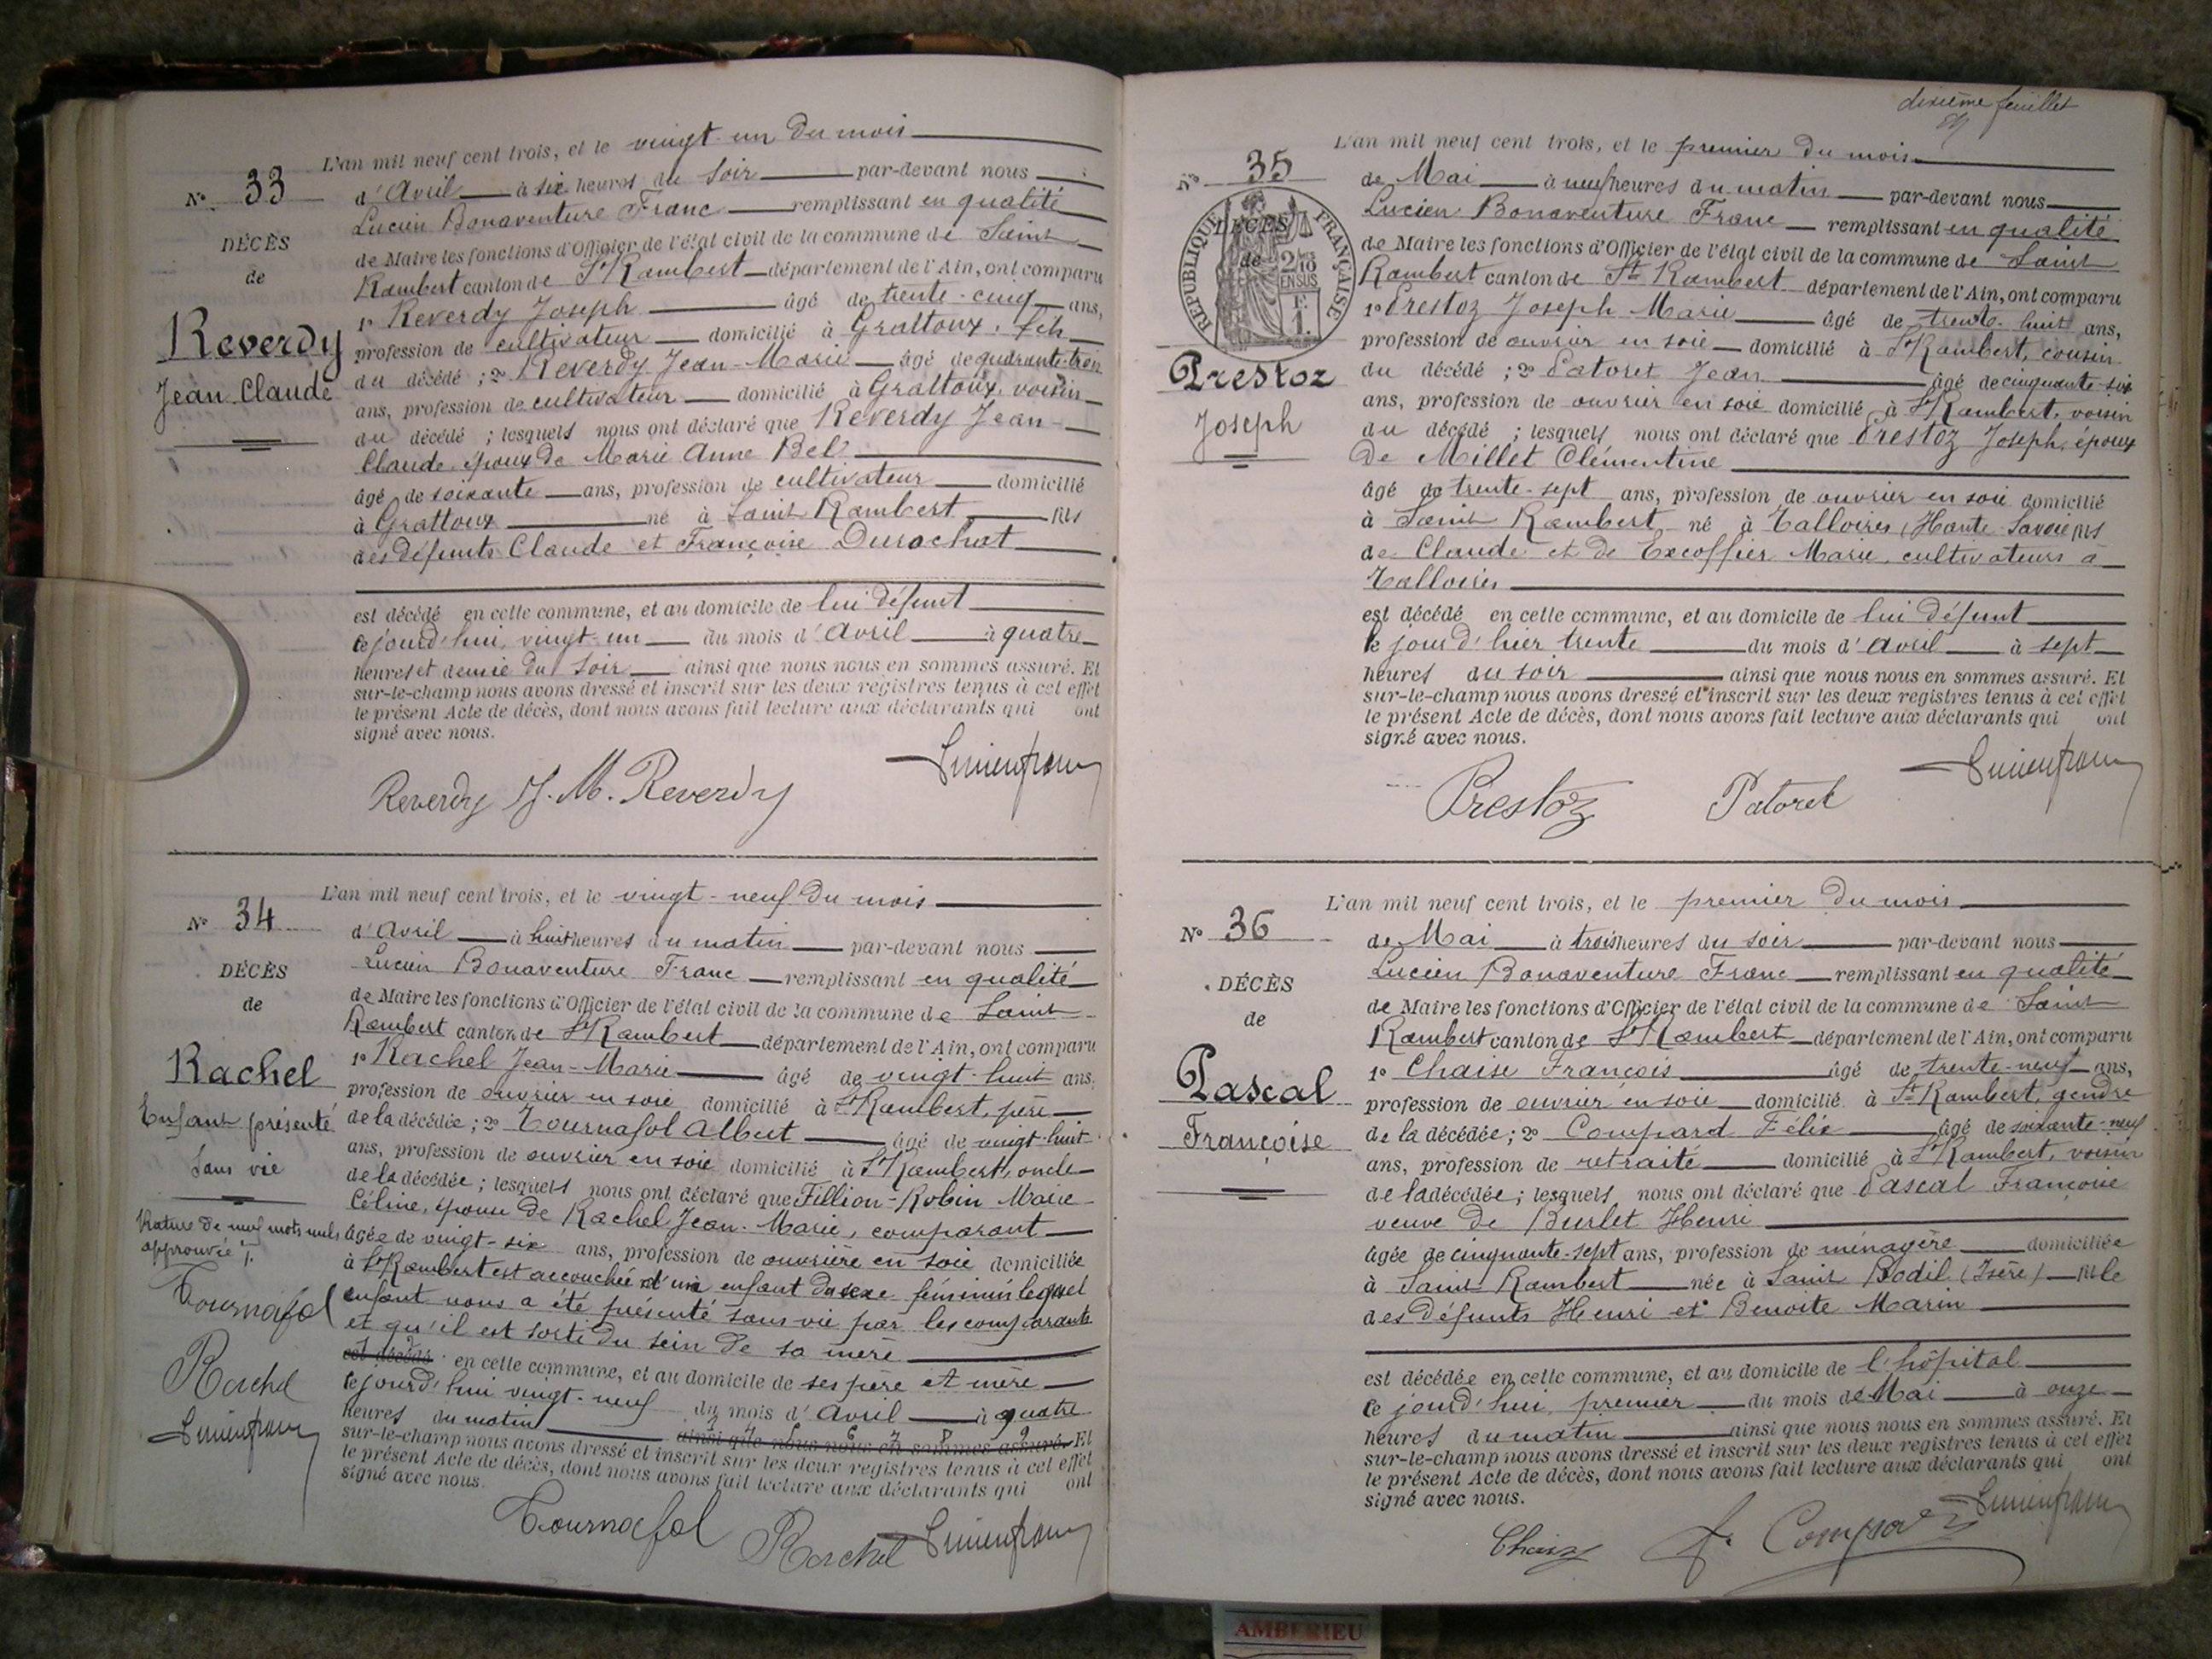 L'an mil neuf cent trois, et le vingt-un du mois
N° 33
d'Avril à six heures du soir par-devant nous
Lucien Bonaventure Franc remplissant en qualité
DÉCÈS
de Maire les fonctions d'Officier de l'état civil de la commune de Saint
de
Rambert canton de St Rambert département de l'Ain, ont comparu
1° Reverdy Joseph âgé de trente-cinq ans,
Reverdy
profession de cultivateur domicilié à Grattoux, fils
Jean-Claude
du décédé ; 2° Reverdy Jean-Marie âgé de quarante-trois
ans, profession de cultivateur domicilié à Grattoux, voisin
du décédé ; lesquels nous ont déclaré que Reverdy Jean-
Claude, époux de Marie Anne Bel
âgé de soixante ans, profession de cultivateur domicilié
à Grattoux né à Saint Rambert fils
des défunts Claude et Françoise Durochat
est décédé en cette commune, et au domicile de lui défunt
ce jourd'hui, vingt-un du mois d'Avril à quatre
heures et demie du soir ainsi que nous nous en sommes assuré. Et
sur-le-champ nous avons dressé et inscrit sur les deux registres tenus à cet effet
le présent Acte de décès, dont nous avons fait lecture aux déclarants qui ont
signé avec nous.
Reverdy J. M. Reverdy Lucien franc
L'an mil neuf cent trois, et le vingt-neuf du mois
N° 34
d'Avril à huit heures du matin par-devant nous
Lucien Bonaventure Franc remplissant en qualité
DÉCÈS
de Maire les fonctions d'Officier de l'état civil de la commune de Saint
de
Rambert canton de St Rambert département de l'Ain, ont comparu
1° Rachel Jean-Marie âgé de vingt-huit ans,
Rachel
profession de ouvrier en soie domicilié à St Rambert, père
Enfant présenté
de la décédée ; 2° Tournafol Albert âgé de vingt-huit
sans vie
ans, profession de ouvrier en soie domicilié à St Rambert, oncle
de la décédée ; lesquels nous ont déclaré que Fillion-Robin Marie
Céline, épouse de Rachel Jean-Marie, comparant
Rature de neuf mots nuls
approuvée
âgée de vingt-six ans, profession de ouvrière en soie domiciliée
à St Rambert est accouchée d'un enfant du sexe féminin lequel
enfant nous a été présenté sans vie par les comparants
Tournafol
et qu'il est sorti du sein de sa mère
est décédé en cette commune, et au domicile de ses père et mère
Rachel
ce jourd'hui vingt-neuf du mois d'Avril à quatre
Lucien franc
heures du matin ainsi que nous nous en sommes assuré. Et
sur-le-champ nous avons dressé et inscrit sur les deux registres tenus à cet effet
le présent Acte de décès, dont nous avons fait lecture aux déclarants qui ont
signé avec nous.
Tournafol Rachel Lucien franc
dixième feuillet
L'an mil neuf cent trois, et le premier du mois
N° 35
de Mai à neuf heures du matin par-devant nous
Lucien Bonaventure Franc remplissant en qualité
RÉPUBLIQUE FRANÇAISE
DÉCÈS
de
2/10
EN SUS
F.
1.
de Maire les fonctions d'Officier de l'état civil de la commune de Saint
Rambert canton de St Rambert département de l'Ain, ont comparu
1° Prestoz Joseph Marie âgé de trente-huit ans,
profession de ouvrier en soie domicilié à St Rambert, cousin
Prestoz
Joseph
du décédé ; 2° Patoret Jean âgé de cinquante-six
ans, profession de ouvrier en soie domicilié à St Rambert, voisin
du décédé ; lesquels nous ont déclaré que Prestoz Joseph, époux
de Millet Clémentine
âgé de trente-sept ans, profession de ouvrier en soie domicilié
à Saint Rambert né à Talloires (Haute Savoie) fils
de Claude et de Excoffier Marie, cultivateurs à
Talloires
est décédé en cette commune, et au domicile de lui défunt
le jour d'hier trente du mois d'Avril à sept
heures du soir ainsi que nous nous en sommes assuré. Et
sur-le-champ nous avons dressé et inscrit sur les deux registres tenus à cet effet
le présent Acte de décès, dont nous avons fait lecture aux déclarants qui ont
signé avec nous.
Prestoz Patoret Lucien franc
L'an mil neuf cent trois, et le premier du mois
N° 36
de Mai à trois heures du soir par-devant nous
Lucien Bonaventure Franc remplissant en qualité
DÉCÈS
de Maire les fonctions d'Officier de l'état civil de la commune de Saint
de
Rambert canton de St Rambert département de l'Ain, ont comparu
1° Chaise François âgé de trente-neuf ans,
Pascal
profession de ouvrier en soie domicilié à St Rambert, gendre
Françoise
de la décédée ; 2° Compard Félix âgé de soixante-neuf
ans, profession de retraité domicilié à St Rambert, voisin
de la décédée ; lesquels nous ont déclaré que Pascal Françoise
veuve de Burlet Henri
âgée de cinquante-sept ans, profession de ménagère domiciliée
à Saint Rambert née à Saint Bodil (Isère) fille
des défunts Henri et Benoite Marin
est décédée en cette commune, et au domicile de l'hôpital
ce jourd'hui, premier du mois de Mai à onze
heures du matin ainsi que nous nous en sommes assuré. Et
sur-le-champ nous avons dressé et inscrit sur les deux registres tenus à cet effet
le présent Acte de décès, dont nous avons fait lecture aux déclarants qui ont
signé avec nous.
Chaise f. Compard Lucien franc
AMBERIEU